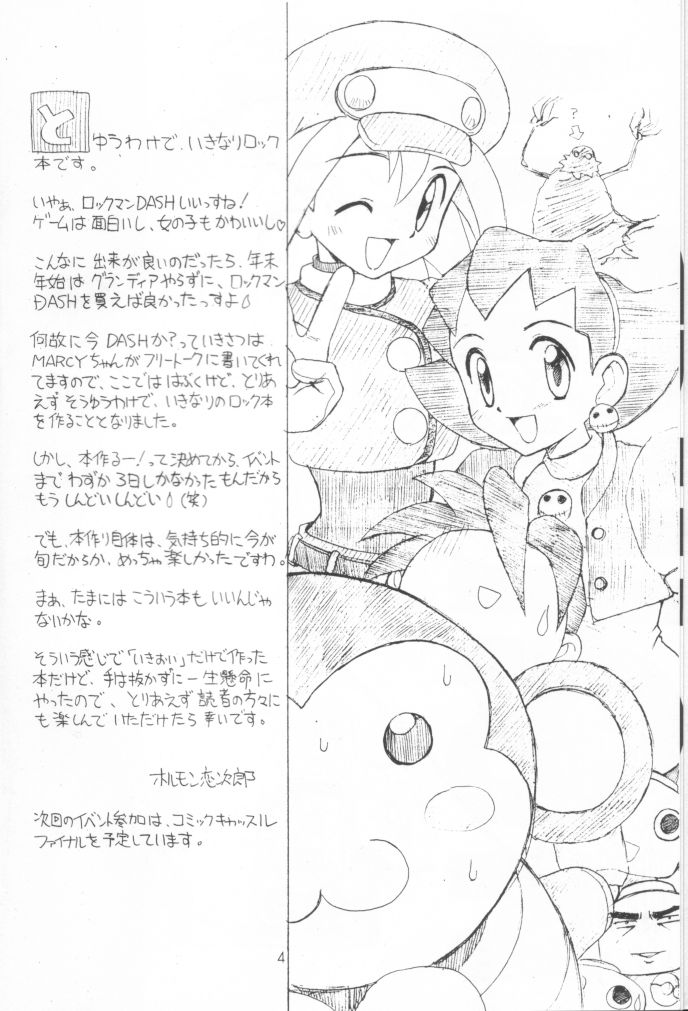 と
ゆうわけで、いきなりロック
本です。
いやぁ、ロックマンDASHいいっすね！
ゲームは面白いし、女の子もかわいいし♡
こんなに出来が良いのだったら、年末
年始はグランディアやらずに、ロックマン
DASHを買えば良かったっすよ
何故に今DASHか？っていきさつは
MARCYちゃんがフリートークに書いてくれ
てますので、ここでははぶくけど、とりあ
えずそうゆうわけで、いきなりのロック本
を作ることとなりました。
しかし、本作るー！って決めてから、イベント
までわずか3日しかなかったもんだから
もうしんどいしんどい（笑）
でも、本作り自体は、気持ち的に今が
旬だからか、めっちゃ楽しかったですわ。
まぁ、たまにはこういう本もいいんじゃ
ないかな。
そういう感じで「いきおい」だけで作った
本だけど、手は抜かずに一生懸命に
やったので、とりあえず読者の方々に
も楽しんでいただけたら幸いです。
ホルモン恋次郎
次回のイベント参加は、コミックキャッスル
ファイナルを予定しています。
4
?